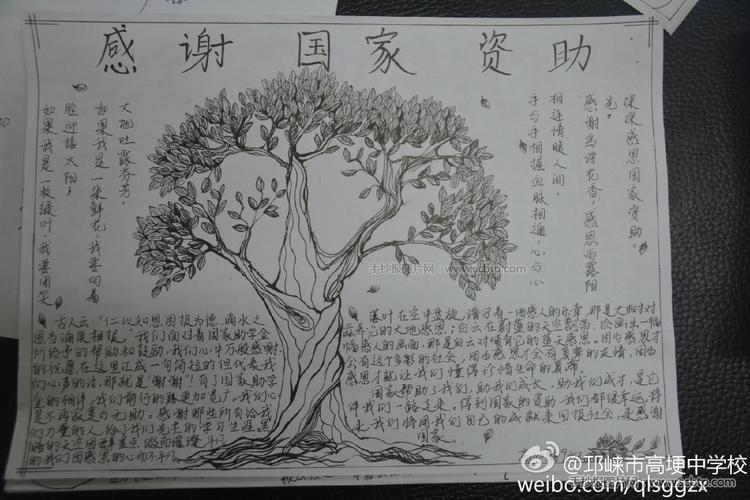 感谢 国家 资助
深深感恩国家资助。
感谢鸟语花香，感恩雨露阳
光。
相连情暖人间。
手与手相握血脉相通，心与心
大地吐露芬芳。
如果我是一朵鲜花，我要向着
脸迎接太阳；
如果我是一枚绿叶，我要闭笑
手抄报图片网：www.sdbtp.com
古人云："仁以知恩图报为德，滴水之
恩当涌泉相报。"我们面对着国家助学金
所给予的帮助和鼓励，我们心中万般感谢
的祝愿在这里汇成一句简短的但代表我
们心声的话，那就是"谢谢"！有了国家助学
金的相伴，我们前行的路更加宽广，我们心
里不再寂寞与无助。感谢那些所有给我
们力量的人，给了我们光芒的学习生涯，黑
暗的天空因
的我们因感恩的心而不平凡。
落叶在空中盘旋，谱写着一曲感人的乐章，那是大树对
滋养它的大地感恩；白云在蔚蓝的天空飘荡，绘画出一幅
幅感人的画面，那是白云对哺育它的蓝天感恩。因为感恩才
会有这个多彩的社会，因为感恩才会有真挚的友情，因为
感恩才能让我们懂得珍惜生命的真谛。
国家帮助了我们，助我们成长，助我们成才，是它
伴我们一路走来。得到国家的资助，我们都很幸运，将
来我们将用我们自己的成就来回报社会，来感谢
国家。
@邛崃市高埂中学校
weibo.com/qlsggzx